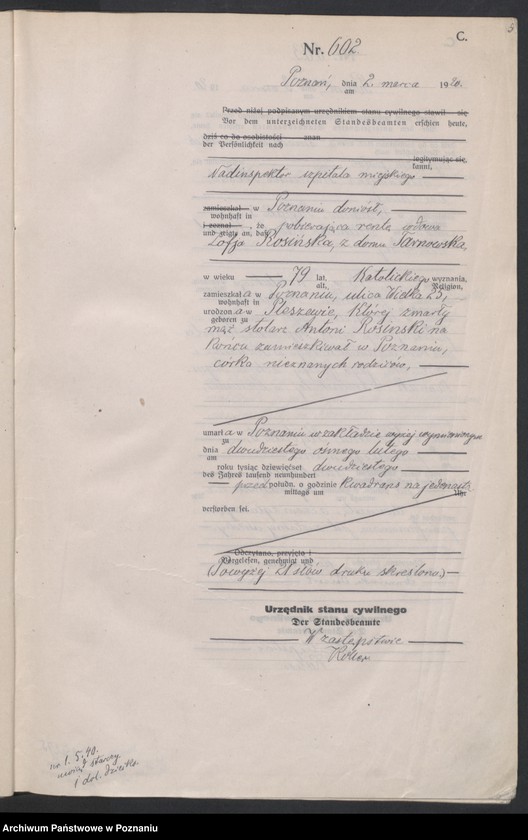 C.
5
Nr. 602.
Poznań, dnia 2. marca 1920.
am
Przed niżej podpisanym urzędnikiem stanu cywilnego stawił się
Vor dem unterzeichneten Standesbeamten erschien heute,
dziś co do osobistości znan
der Persönlichkeit nach
legitymując się,
kannt,
Nadinspektor szpitala miejskiego
zamieszkał w Poznaniu doniósł,
wohnhaft in
i zeznał, że pobierająca rentę wdowa
und zeigte an, daß
Zofja Rosińska, z domu Tarnowska,
w wieku 79 lat, Katolickiego wyznania,
alt, Religion,
zamieszkał a w Poznaniu, ulica Wielka 25,
wohnhaft in
urodzon a w Pleszewie, której zmarły
geboren zu
mąż stolarz Antoni Rosinski na
końcu zamieszkiwał w Poznaniu,
córka nieznanych rodziców,
umarł a w Poznaniu w zakładzie wyżej wymienionym
zu
dnia dwudziestego ósmego lutego
am
roku tysiąc dziewięćset dwudziestego
des Jahres tausend neunhundert
przed połudn. o godzinie kwadrans na jedenastą
mittags um Uhr
verstorben sei.
Odczytano, przyjęto i
Vorgelesen, genehmigt und
(Powyżej 21 słów druku skreślono.)
Urzędnik stanu cywilnego
Der Standesbeamte
W zastępstwie
nr. 1. 5. 40.
Archiwum Państwowe w Poznaniu